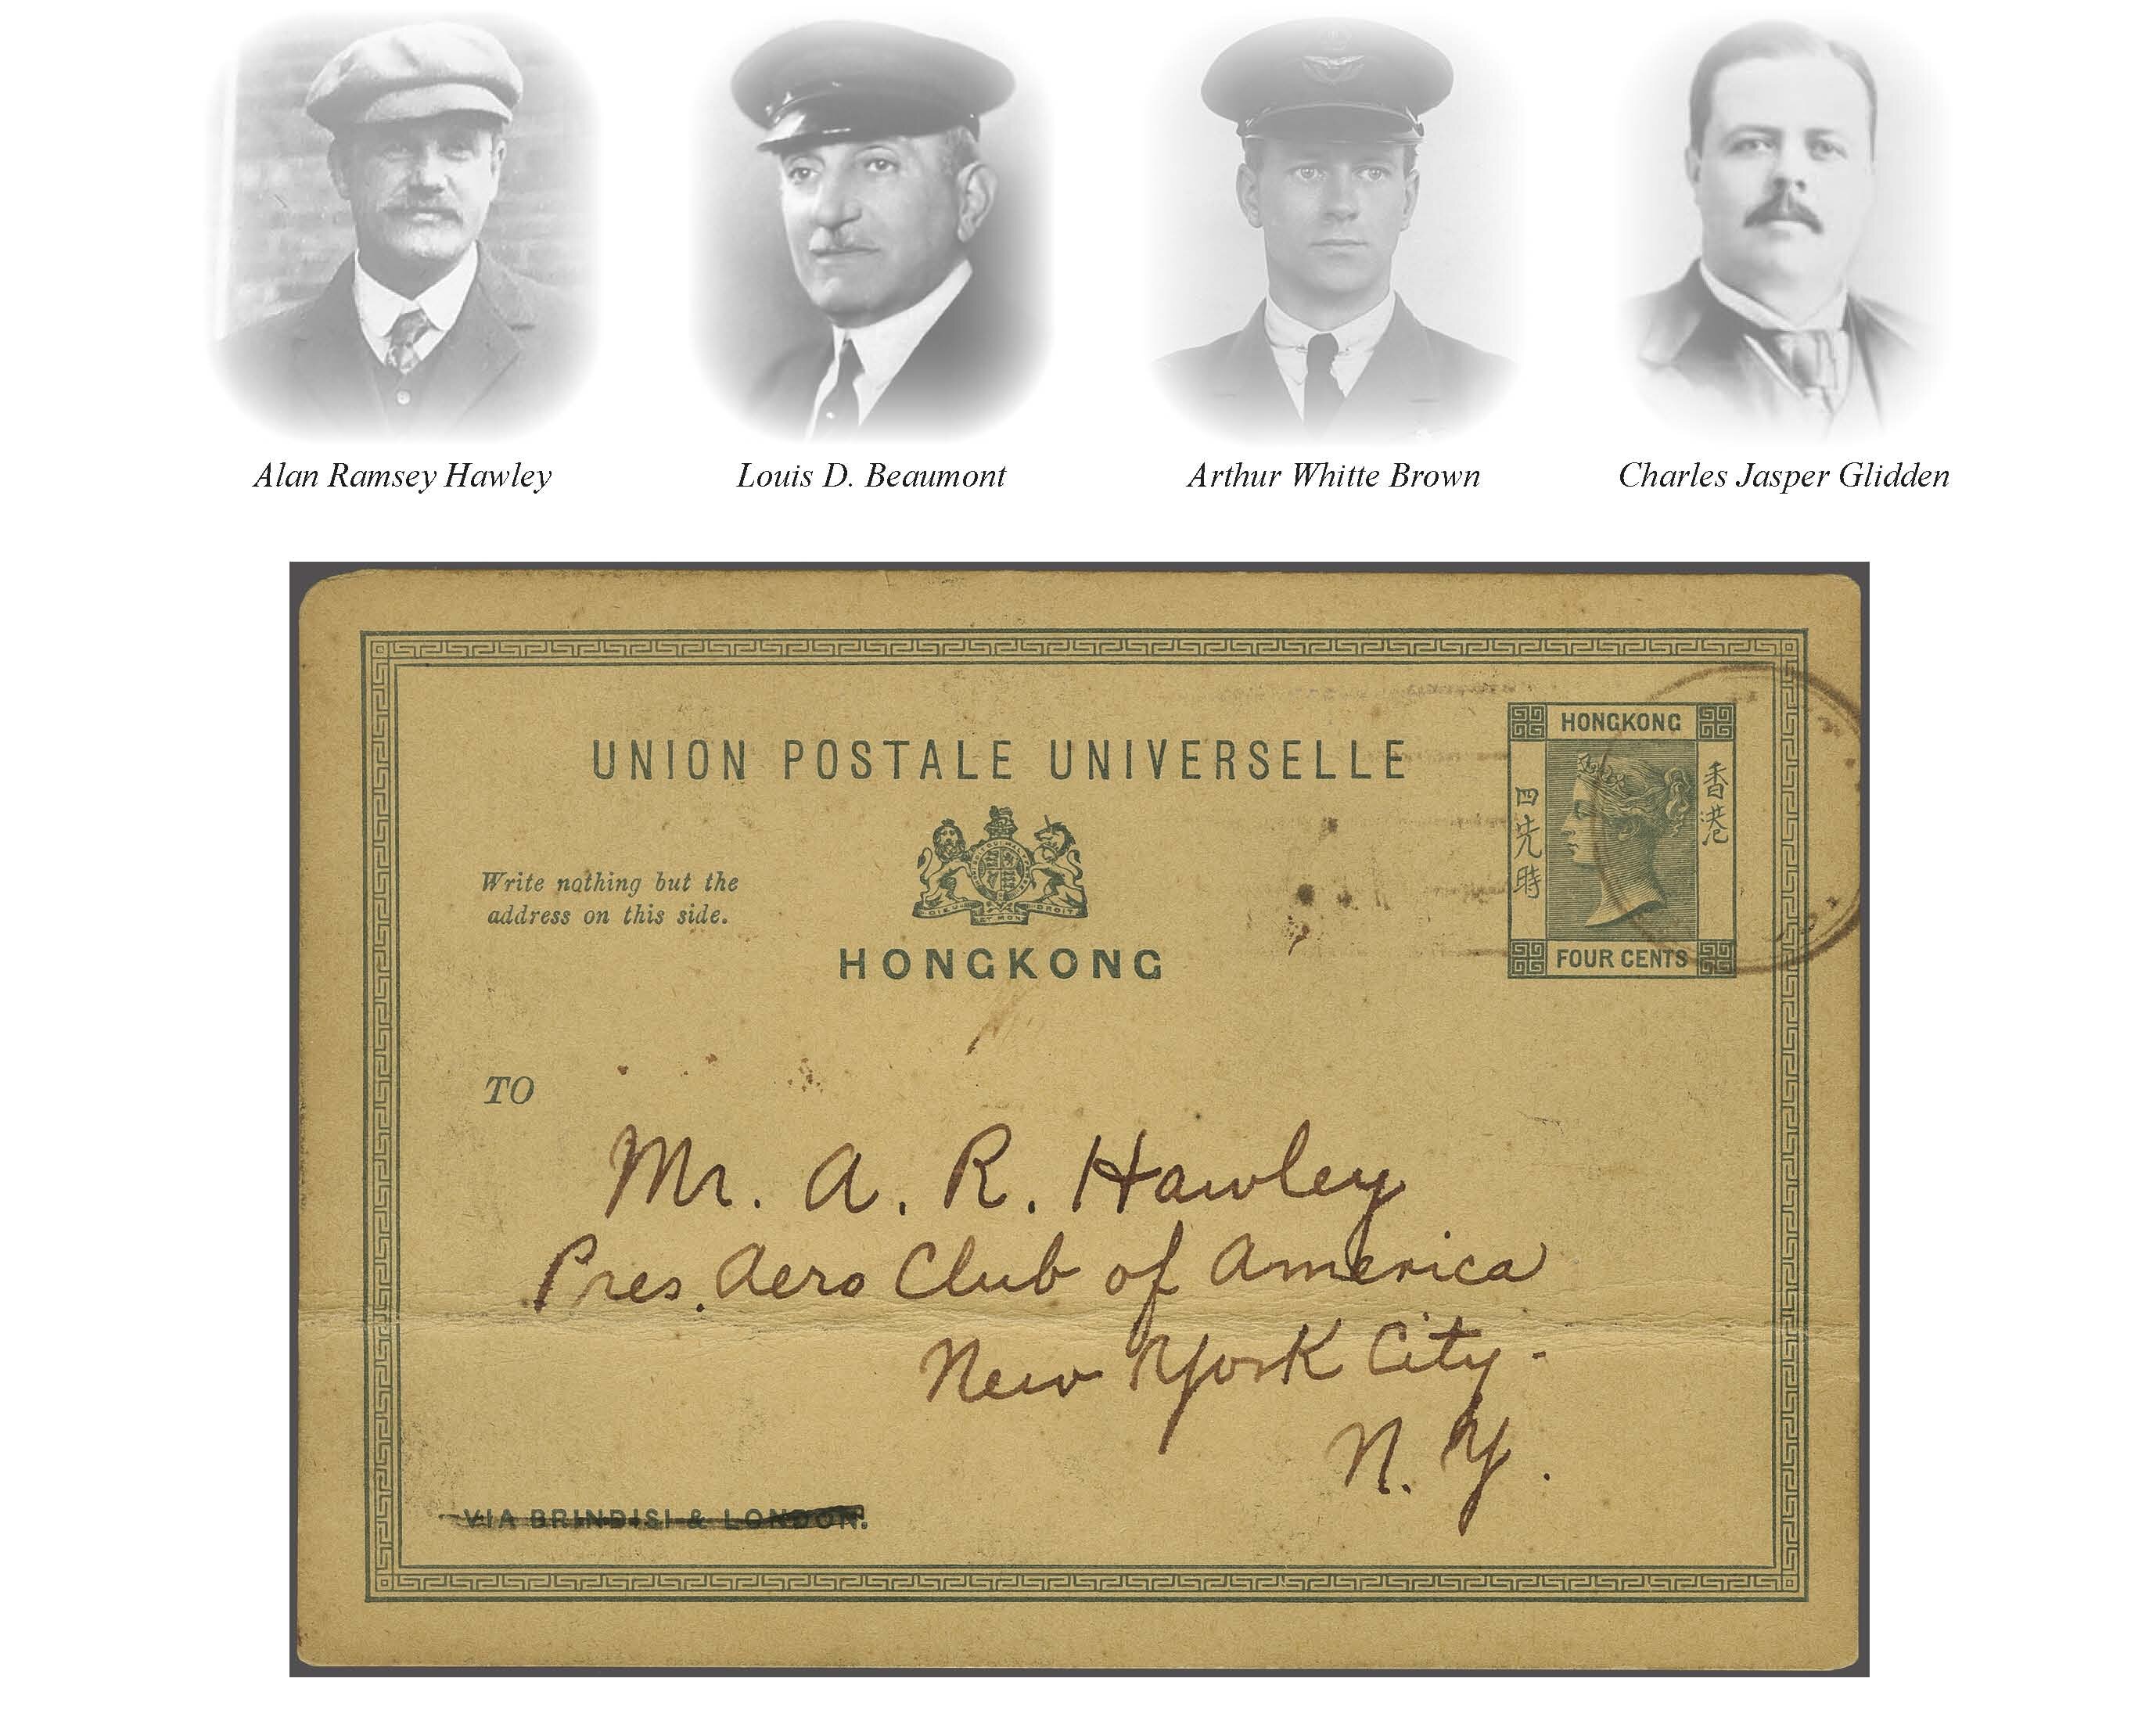 Alan Ramsey Hawley
Louis D. Beaumont
Arthur Whitte Brown
Charles Jasper Glidden
UNION POSTALE UNIVERSELLE
HONGKONG
香港
四先時
FOUR CENTS
Write nothing but the
address on this side.
DIEU ET MON DROIT
HONGKONG
TO
Mr. A. R. Hawley
Pres. Aero Club of America
New York City -
N. Y.
VIA BRINDISI & LONDON.